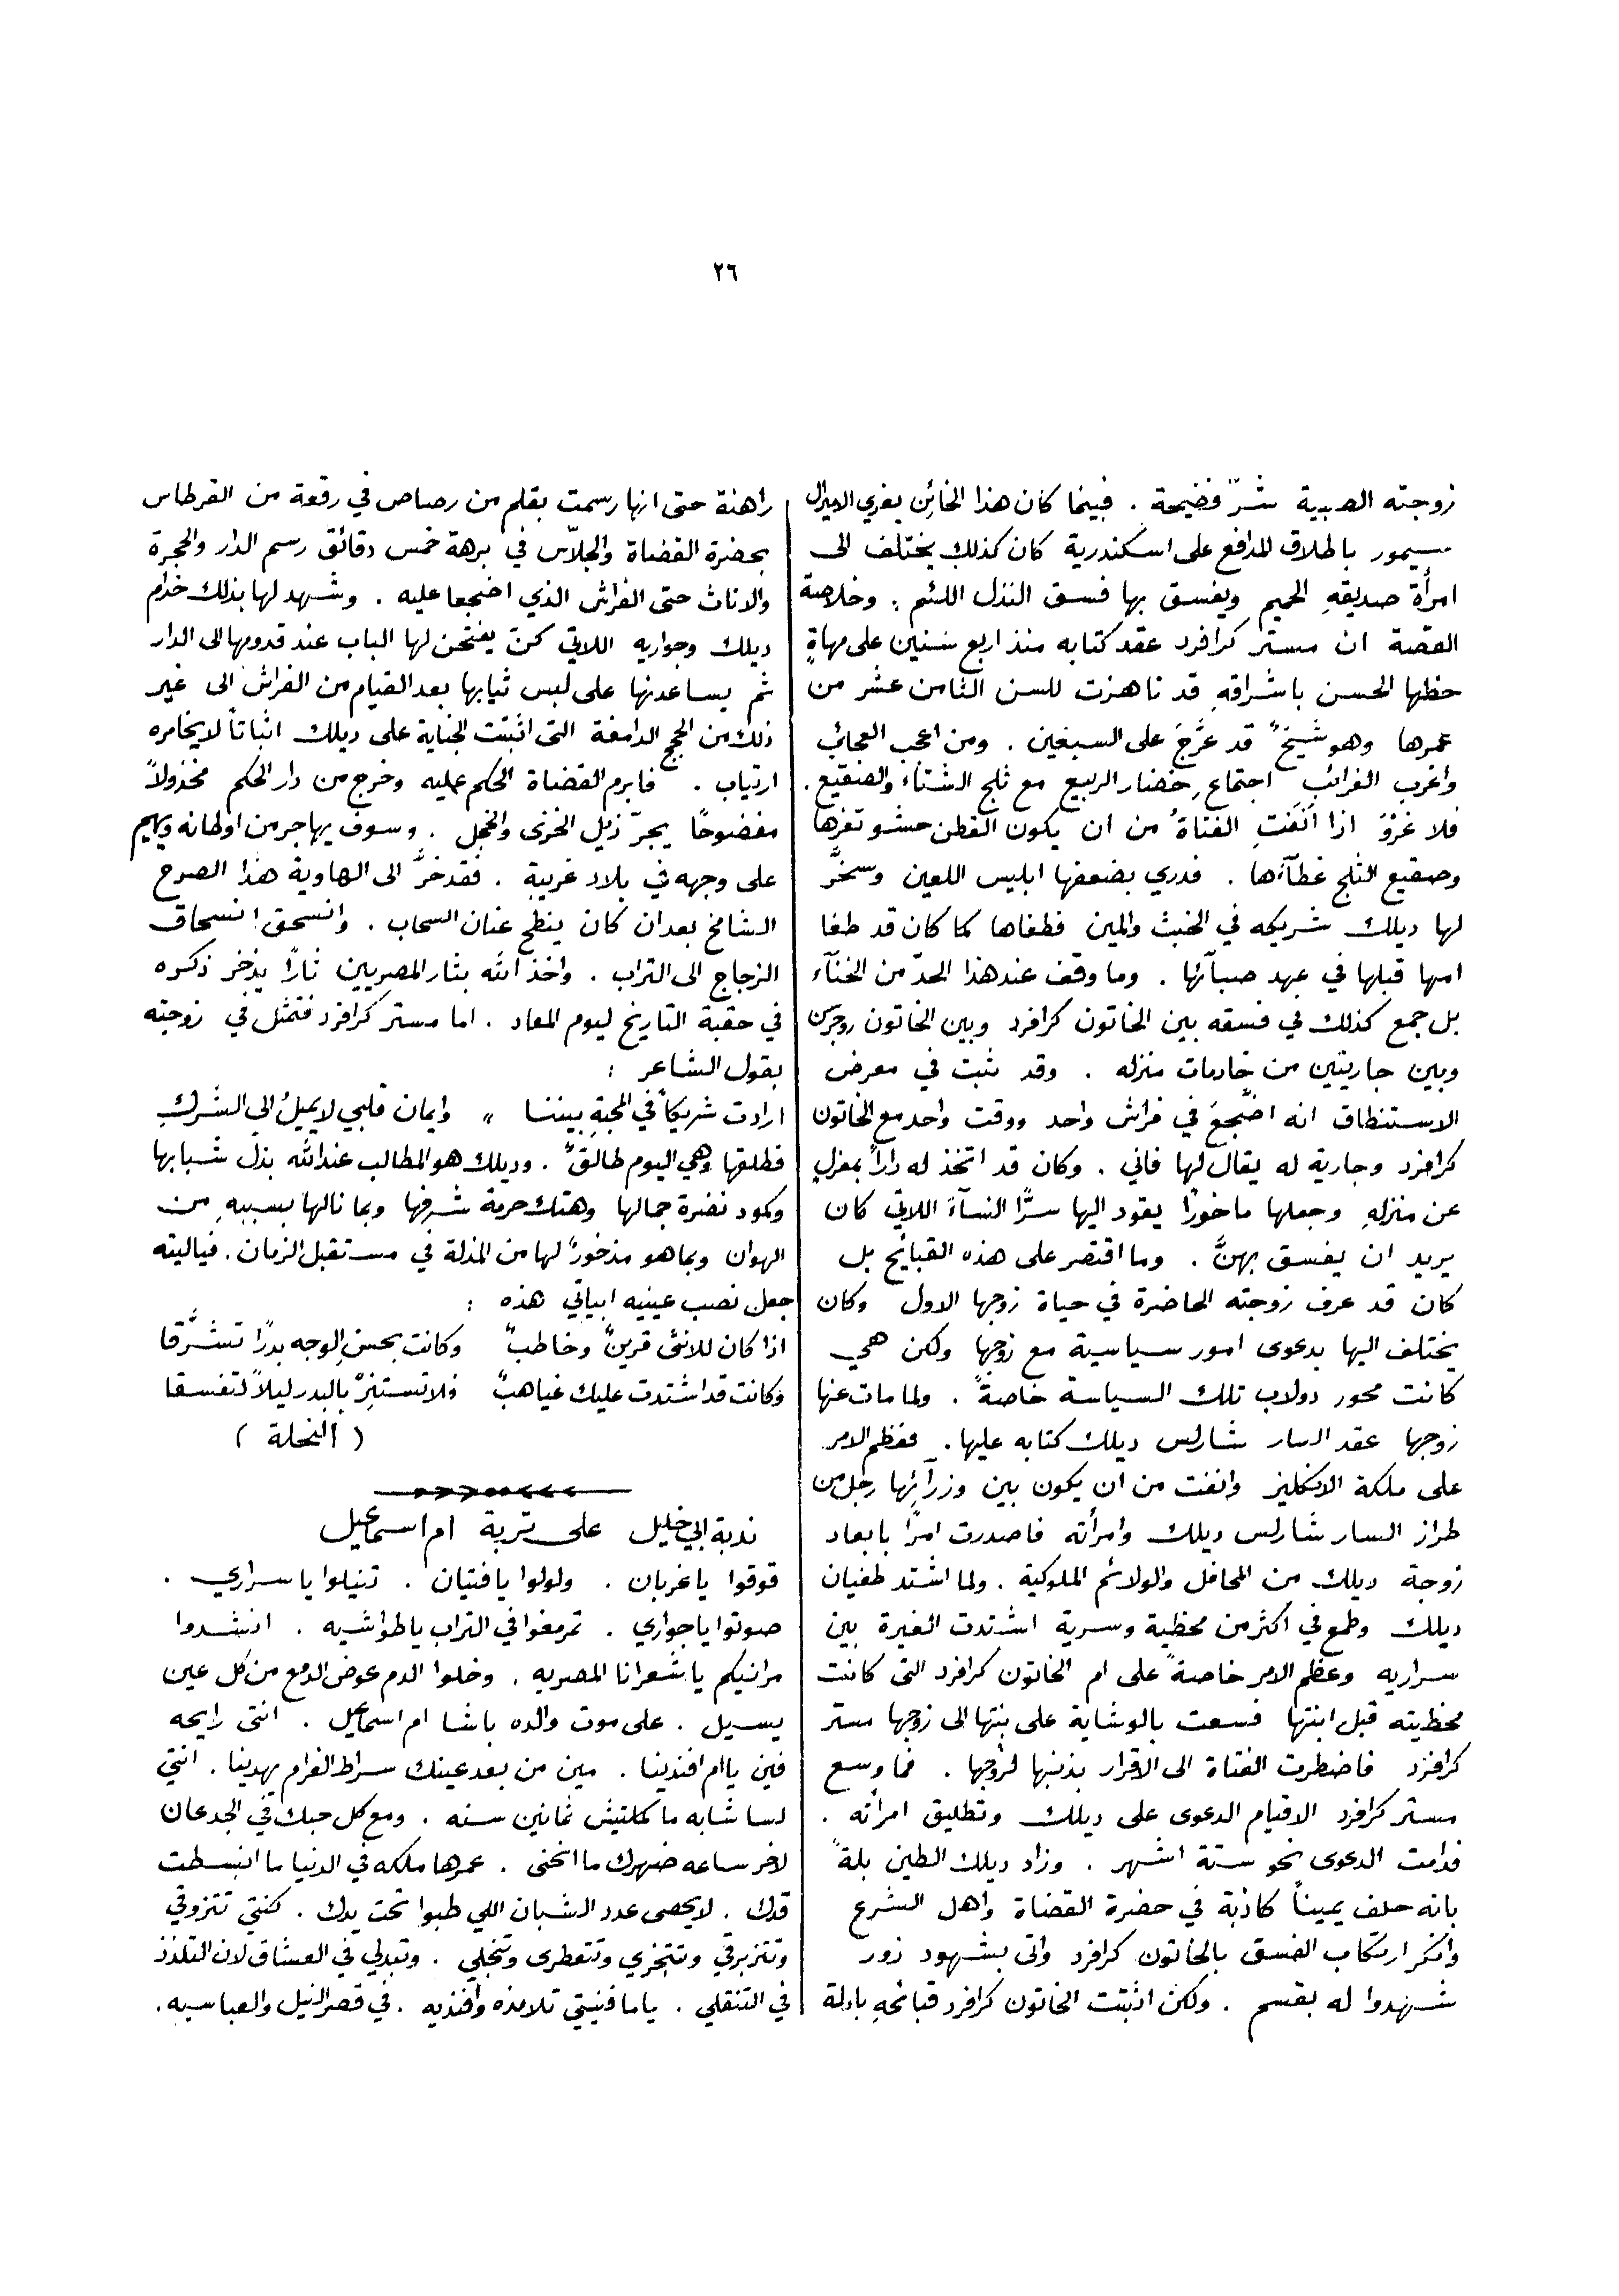 ٢٦
زوجته الصبية شرّ فضيحة . فبينما كان هذا الخائن يغري الاميرال
سيمور باطلاق المدافع على اسكندرية كان كذلك يختلف الى
امرأة صديقهِ الحميم ويفسق بها فسق النذل اللئيم . وخلاصة
القصة ان مستر كرافرد عقد كتابه منذ اربع سنين على مهاةٍ
حظها الحسن باشراقهِ قد ناهزت للسن الثامن عشر من
عمرها وهو شيخٌ قد عرَّجَ على السبعين . ومن اعجب العجائب
واغرب الغرائب اجتماع خضار الربيع مع ثلج الشتاء والصقيع .
فلا غروَ اذا انفَتِ الفتاةُ من ان يكون القطن حشو ثغرها
وصقيع الثلج غطآءها . فدري بضعفها ابليس اللعين وسخَّر
لها ديلك شريكه في الخبث والمين فطغاها كما كان قد طغا
امها قبلها في عهد صبآئها . وما وقف عند هذا الحدّ من الخنآء
بل جمع كذلك في فسقه بين الخاتون كرافرد وبين الخاتون روجرس
وبين جاريتين من خادمات منزله . وقد ثبت في معرض
الاستنطاق انه اضّجعَ في فراش واحد ووقت واحد مع الخاتون
كرافرد وجارية له يقال لها فاني . وكان قد اتخذ له داراً بمعزلٍ
عن منزلهِ وجعلها ماخورًا يقود اليها سرًّا النسآءَ اللاتي كان
يريد ان يفسق بهنَّ . وما اقتصر على هذه القبايح بل
كان قد عرف زوجته الحاضرة في حياة زوجها الاول وكان
يختلف اليها بدعوى امور سياسية مع زوجها ولكن هي
كانت محور دولاب تلك السياسة خاصةً . ولما مات عنها
زوجها عقد السار شارلس ديلك كتابه عليها . فعظم الامر
على ملكة الانكليز وانفت من ان يكون بين وزرآئِها رجل من
طراز السار شارلس ديلك وامرأته فاصدرت امرًا بابعاد
زوجة ديلك من المحافل والولائم الملوكية . ولما اشتد طغيان
ديلك وطمع في اكثر من محظية وسرية اشتدت الغيرة بين
سراريه وعظم الامر خاصةً على ام الخاتون كرافرد التى كانت
محظيته قبل ابنتها فسعت بالوشاية على بنتها الى زوجها مستر
كرافرد فاضطرت الفتاة الى الاقرار بذنبها لزوجها . فما وسع
مستر كرافرد الا قيام الدعوى على ديلك وتطليق امرأته .
فدامت الدعوى نحو ستة اشهر . وزاد ديلك الطين بلةً
بانه حلف يميناً كاذبة في حضرة القضاة واهل الشرع
وانكر ارتكاب الفسق بالخاتون كرافرد واتى بشهود زور
شهدوا له بقسم . ولكن اثبتت الخاتون كرافرد قبائحهِ بادلة
راهنة حتى انها رسمت بقلم من رصاص في رقعة من القرطاس
بحضرة القضاة والجلاّس في برهة خمس دقائق رسم الدار والحجرة
والاثاث حتى الفراش الذي اضجعا عليه . وشهد لها بذلك خدّام
ديلك وجواريه اللاتي كنّ يفتحن لها الباب عند قدومها الى الدار
ثم يساعدنها على لبس ثيابها بعد القيام من الفراش الى غير
ذلك من الحجج الدامغة التى اثبتت الجناية على ديلك اثباتاً لا يخامره
ارتياب . فابرم القضاة الحكم عليه وخرج من دار الحكم مخذولاً
مفضوحًا يجرّ ذيل الخزى والخجل . وسوف يهاجر من اوطانه ويهيم
على وجهه في بلاد غريبة . فقد خرَّ الى الهاوية هذا الصرح
الشامخ بعد ان كان ينطح عنان السحاب . وانسحق انسحاق
الزجاج الى التراب . واخذ الله بثار المصريين ثارًا يذخر ذكره
في حقبة التاريخ ليوم المعاد . اما مستر كرافرد فتمثل في زوجته
بقول الشاعر :
ارادت شريكاً في المحبةِ بيننا ،، وايمان قلبي لا يميلُ الى الشرك
فطلقها وهي اليوم طالقٌ . وديلك هو المطالب عند الله بذلّ شبابها
وكمود نضرة جمالها وهتك حرمة شرفها وبما نالها بسببهِ من
الهوان وبما هو مذخورٌ لها من المذلة في مستقبل الزمان . فياليته
جعل نصب عينيه ابياتي هذه :
اذا كان للانثى قرينٌ وخاطبٌ وكانت بحسنِ الوجه بدرًا تشرَّقا
وكانت قد اشتدت عليك غياهبٌ فلا تستنِرْ بالبدر ليلاً لتفسقا
( النحلة )
ندبة ابي خليل على تربة ام اسماعيل
قوقوا يا غربان . ولولوا يا فتيان . تنيلوا يا سراري .
صوتوا يا جواري . تمرمغوا في التراب يا طواشيه . انشدوا
مراثيكم يا شعرانا المصريه . وخلوا الدم عوض الدمع من كل عين
يسيل . على موت والده باشا ام اسماعيل . انتى رايحه
فين يا ام افندينا . مين من بعد عينك سراط الغرام يهدينا . انتي
لسا شابه ما كملتيش ثمانين سنه . ومع كل حبك في الجدعان
لاخر ساعه ضهرك ما انحنى . عمرها ملكه في الدنيا ما انبسطت
قدك . لا يحصى عدد الشبان اللي طبوا تحت يدك . كنتي تتزوقي
وتتزبرقي وتتبخري وتتعطرى وتنجلي . وتبدلي في العشاق لان التلذذ
في التنقلي . ياما فنيتي تلامذه وافنديه . في قصر النيل والعباسيه .